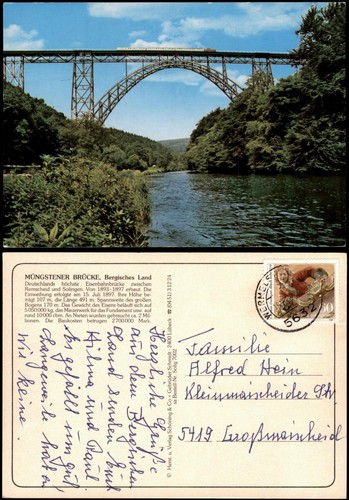 MÜNGSTENER BRÜCKE, Bergisches Land
Deutschlands höchste Eisenbahnbrücke zwischen
Remscheid und Solingen. Von 1893-1897 erbaut. Die
Einweihung erfolgte am 15. Juli 1897. Ihre Höhe be-
trägt 107 m, die Länge 491 m. Spannweite des großen
Bogens 170 m. Das Gewicht des Eisens beläuft sich auf
5 050 000 kg, das Mauerwerk für das Fundament usw. auf
rund 10 000 cbm. An Nieten wurden gebraucht ca. 2 Mil-
lionen. Die Baukosten betrugen 2 700 000 Mark.
Herzliche Grüße
aus dem Bergischen
Land senden Euch
Alma und Paul
Es gefällt uns gut
wie keine.
© Herst. u. Verlag Schöning & Co + Gebrüder Schmidt · 2400 Lübeck ☎ (0451) 3 12 24
Bestell-Nr. Solg 7002
WERMELS
5632
80
Familie
Alfred Hein
Kleinmaischeider Str
5419 Großmaischeid